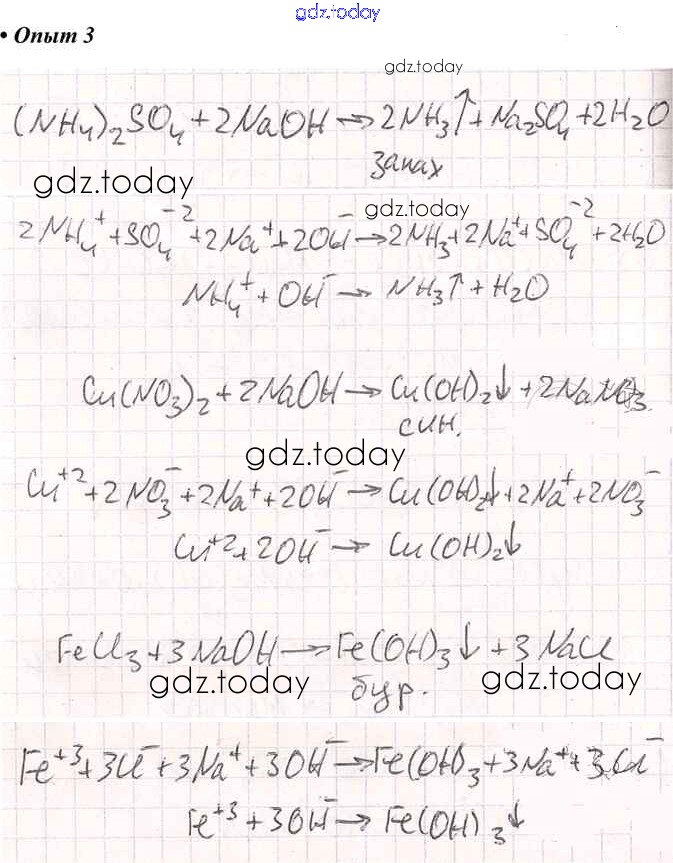 gdz.today
• Опыт 3
gdz.today
(NH₄)₂SO₄ + 2NaOH → 2NH₃↑ + Na₂SO₄ + 2H₂O
запах
gdz.today
gdz.today
2NH₄⁺ + SO₄⁻² + 2Na⁺ + 2OH⁻ → 2NH₃ + 2Na⁺ + SO₄⁻² + 2H₂O
NH₄⁺ + OH⁻ → NH₃↑ + H₂O
Cu(NO₃)₂ + 2NaOH → Cu(OH)₂↓ + 2NaNO₃
син.
gdz.today
Cu⁺² + 2NO₃⁻ + 2Na⁺ + 2OH⁻ → Cu(OH)₂↓ + 2Na⁺ + 2NO₃⁻
Cu⁺² + 2OH⁻ → Cu(OH)₂↓
FeCl₃ + 3NaOH → Fe(OH)₃↓ + 3NaCl
бур.
gdz.today
gdz.today
Fe⁺³ + 3Cl⁻ + 3Na⁺ + 3OH⁻ → Fe(OH)₃ + 3Na⁺ + 3Cl⁻
Fe⁺³ + 3OH⁻ → Fe(OH)₃↓